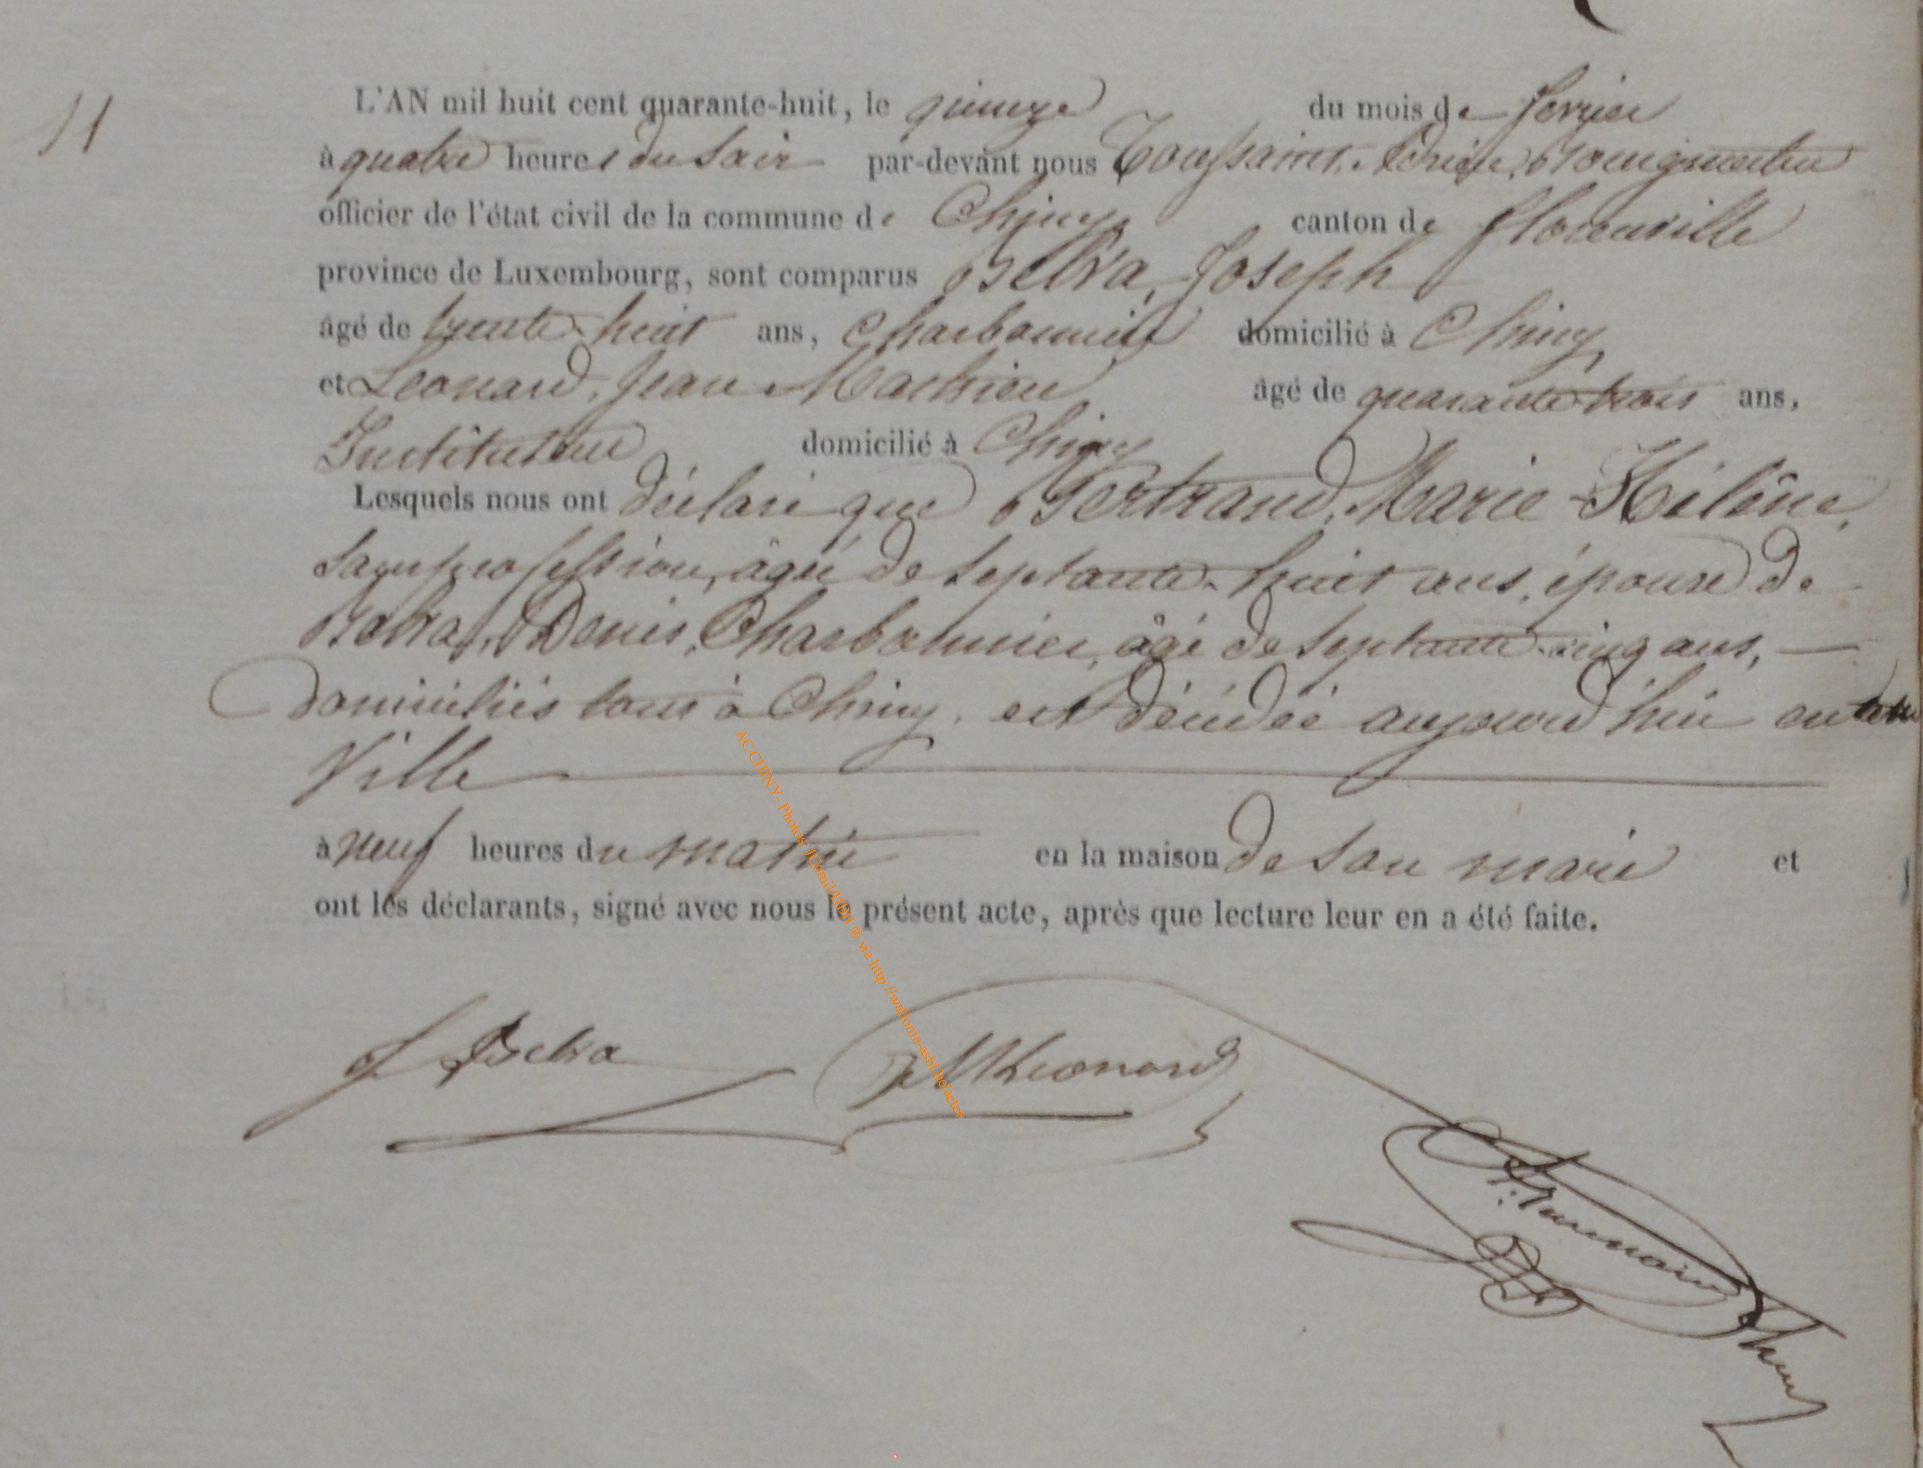 11
L'AN mil huit cent quarante-huit, le quinze du mois de fevrier
à quatre heures du Soir par-devant nous Toussaint, Adrien,
officier de l'état civil de la commune de Chiny canton de florenville
province de Luxembourg, sont comparus Belva, Joseph
âgé de trente-huit ans, Charbonnier domicilié à Chiny
et Leonard, Jean Mathieu âgé de quarante-trois ans,
Instituteur domicilié à Chiny
Lesquels nous ont déclaré que Bertrand, Marie-Hélène,
Sans profession, âgée de septante-huit ans, épouse de
Belva, Denis, Charbonnier, âgé de septante-cinq ans,
domiciliés tous à Chiny, est décédée aujourd'hui en cette
Ville
à neuf heures du matin en la maison de son mari et
ont les déclarants, signé avec nous le présent acte, après que lecture leur en a été faite.
J Belva JMLeonard
AC CHINY- Photos: via http://wallonia-asbl.be/actes